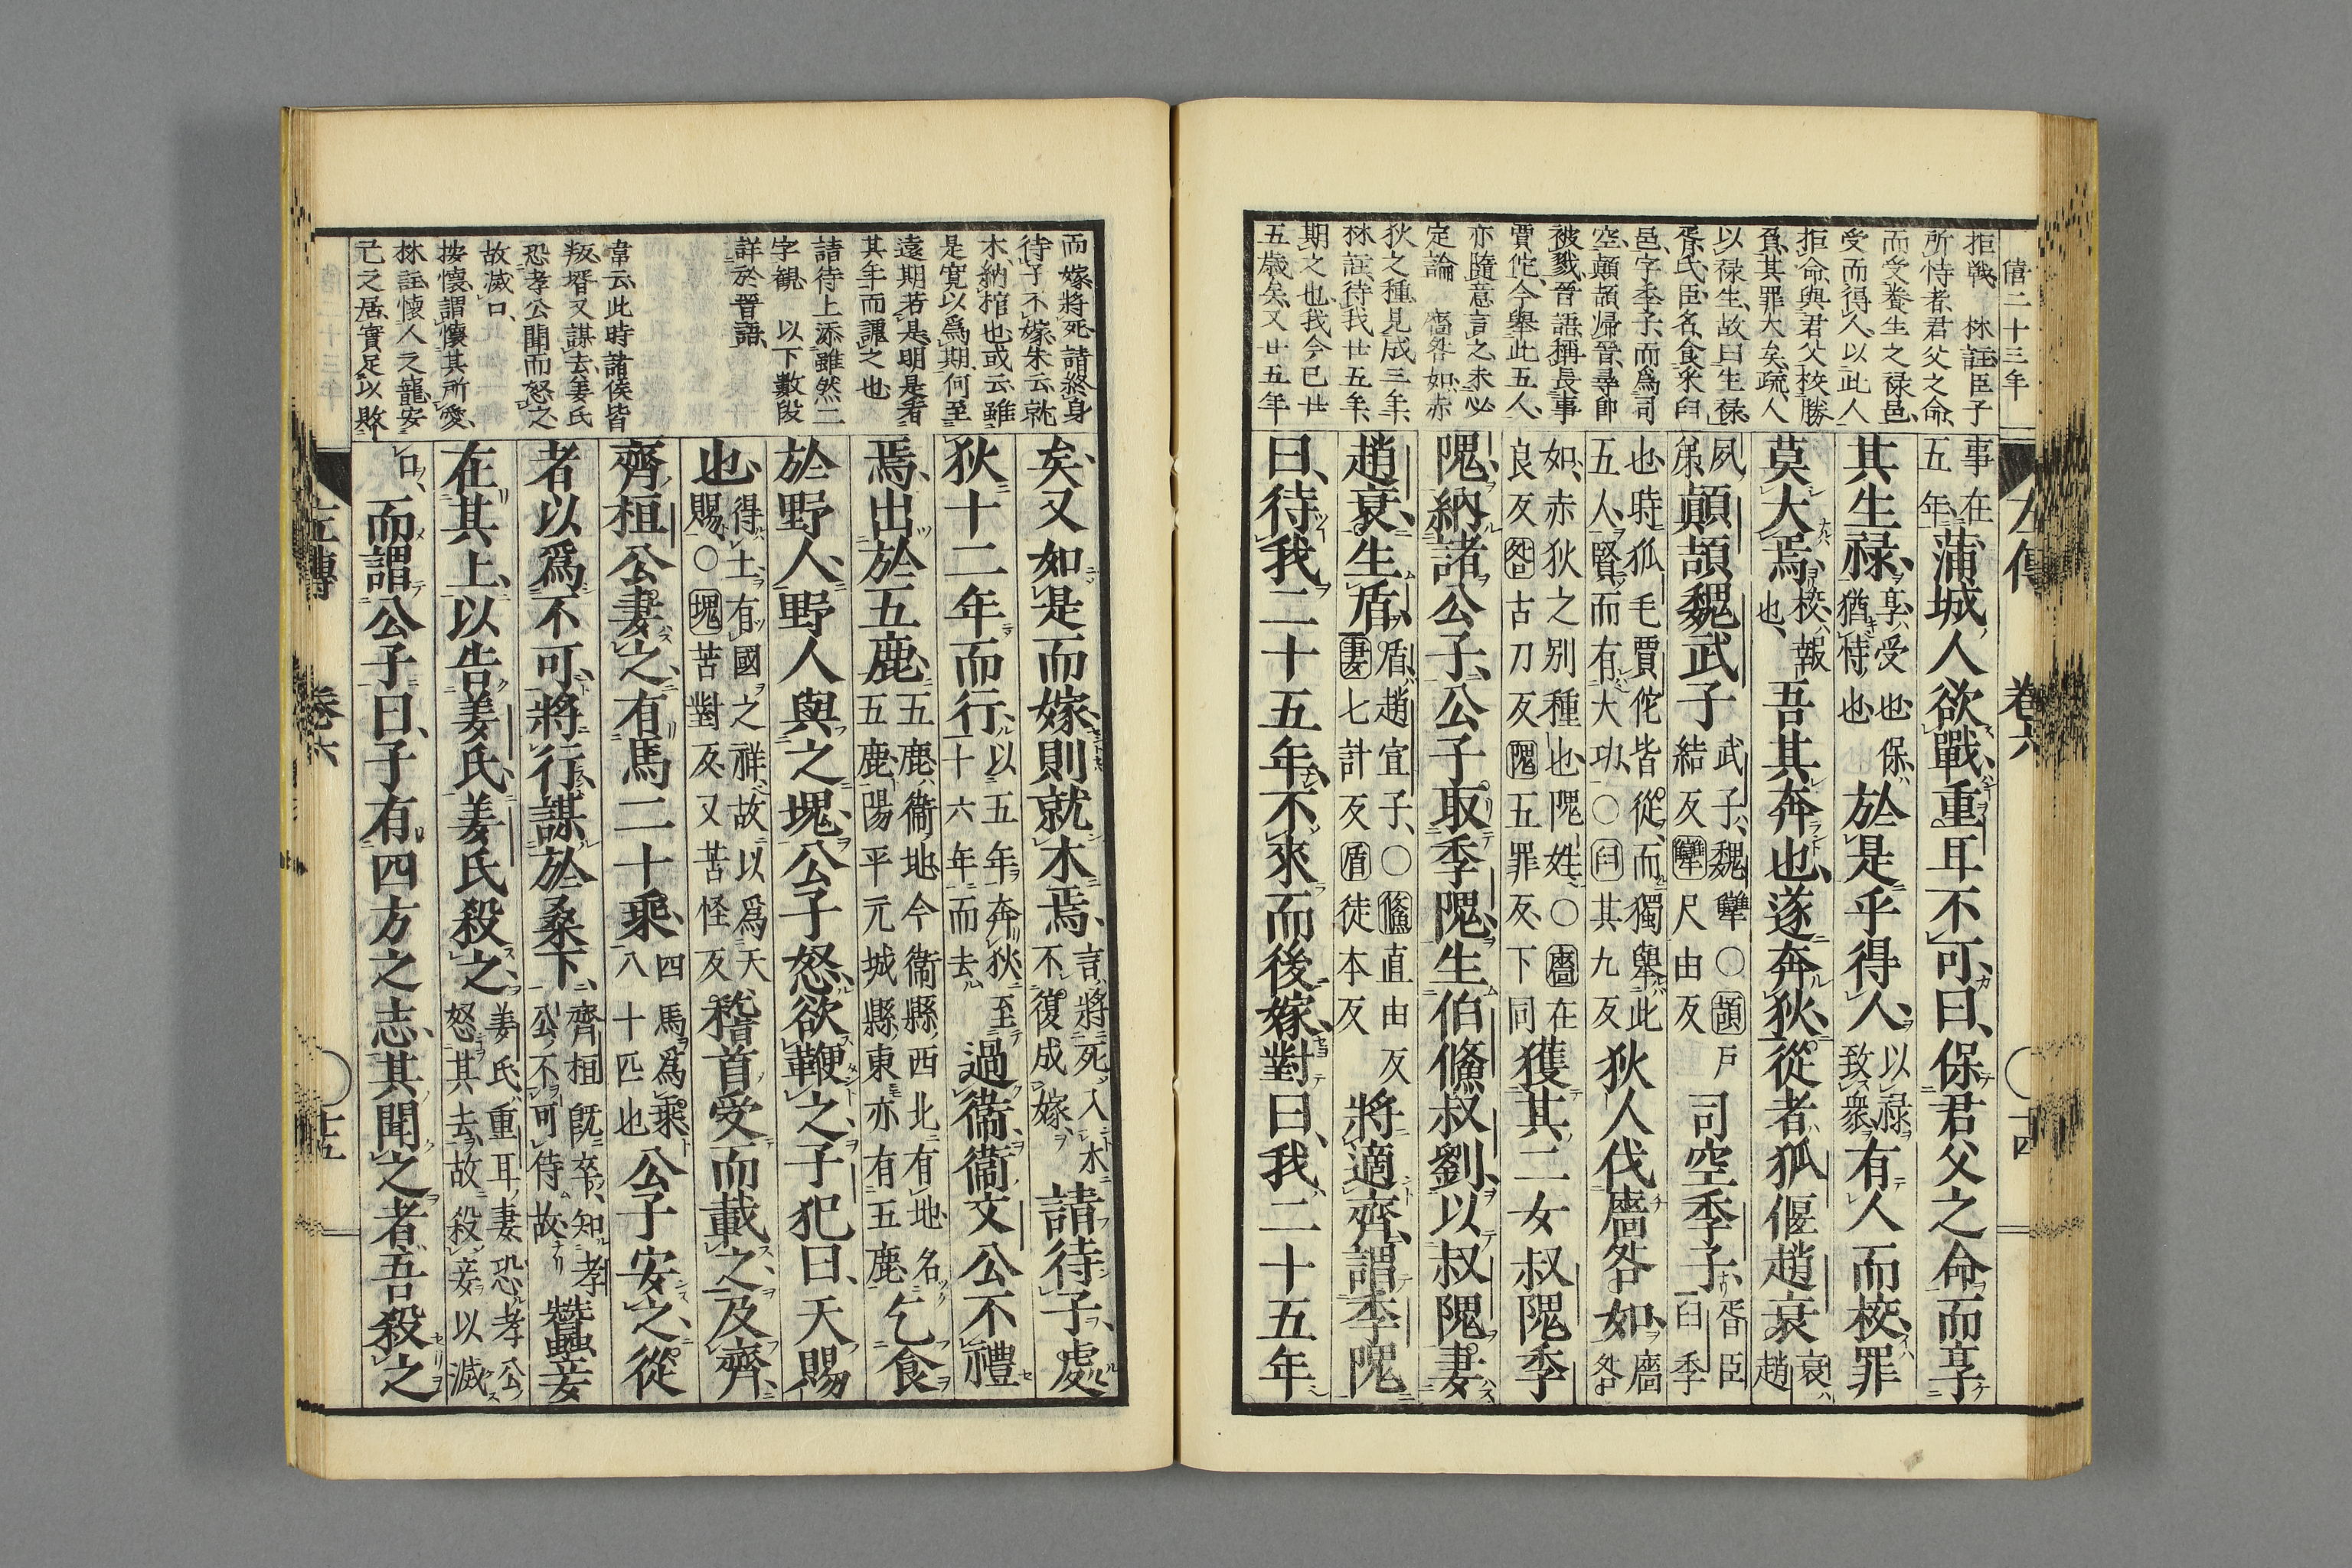 僖二十三年
拒戰、林註臣子
所恃者、君父之命、
而受養生之禄邑、
受而得人、以此人
拒命、與君父校勝
負、其罪大矣、疏、人
以禄生、故曰生禄、
胥氏、臣名、食釆臼
邑、字季子、而爲司
空、顛頡歸晉、尋即
被戮、晉語、稱長事
賈佗、今舉此五人、
亦隨意言之、未必
定論 廧咎如、赤
狄之種、見成三年、
林註、待我廿五年、
期之也、我今已廿
五歳矣、又廿五年
左傳 卷六 十四
事在五年、蒲城人欲戰、重耳不可、曰、保君父之命、而享
其生禄、享、受也、保、猶恃也、於是乎得人、以禄致衆有人而校、罪
莫大焉、校、報也、吾其奔也、遂奔狄、從者狐偃趙衰衰、趙
夙弟、顛頡魏武子武子、魏犫○頡戸結反犫尺由反司空季子、胥臣臼季
也、時狐毛賈佗皆從、而獨舉此五人、賢而有大功、○臼其九反狄人伐廧咎如、廧咎
如、赤狄之別種也、隗姓、○廧在良反咎古刀反隗五罪反、下同獲其二女叔隗季
隗、納諸公子、公子取季隗、生伯鯈叔劉、以叔隗妻
趙衰、生盾、盾、趙宣子、○鯈直由反妻七計反盾徒本反將適齊、謂季隗
曰、待我二十五年、不來而後嫁、對曰、我二十五年
而嫁、將死、請終身
待子、不嫁、朱云、就
木、納棺也、或云、雖
是寛以爲期、何至
遠期若是、明是者
其年而謹之也、
請待上添雖然二
字觀 以下數段
詳於晉語、
韋云、此時諸侯皆
叛、壻又謀去、姜氏
恐孝公聞而怒之
故滅口、
按、懷、謂懷其所愛、
林註、懷人之寵、安
己之居、實足以敗
矣、又如是而嫁、則就木焉、言將死入木、不復成嫁、請待子、處
狄十二年而行、以五年奔狄、至十六年而去、過衞、衞文公不禮
焉、出於五鹿、五鹿、衞地、今衞縣西北有地名五鹿、陽平元城縣東亦有五鹿、乞食
於野人、野人與之塊、公子怒、欲鞭之、子犯曰、天賜
也、得土、有國之祥、故以爲天賜、○塊苦對反、又苦怪反稽首受而載之、及齊、
齊桓公妻之、有馬二十乘、四馬爲乘、八十匹也公子安之、從
者以爲不可、將行、謀於桑下、齊桓既卒、知孝公不可待故蠶妾
在其上、以告姜氏、姜氏殺之、姜氏、重耳妻、恐孝公怒其去、故殺妾以滅
口、而謂公子曰、子有四方之志、其聞之者、吾殺之
左傳 卷六 十五